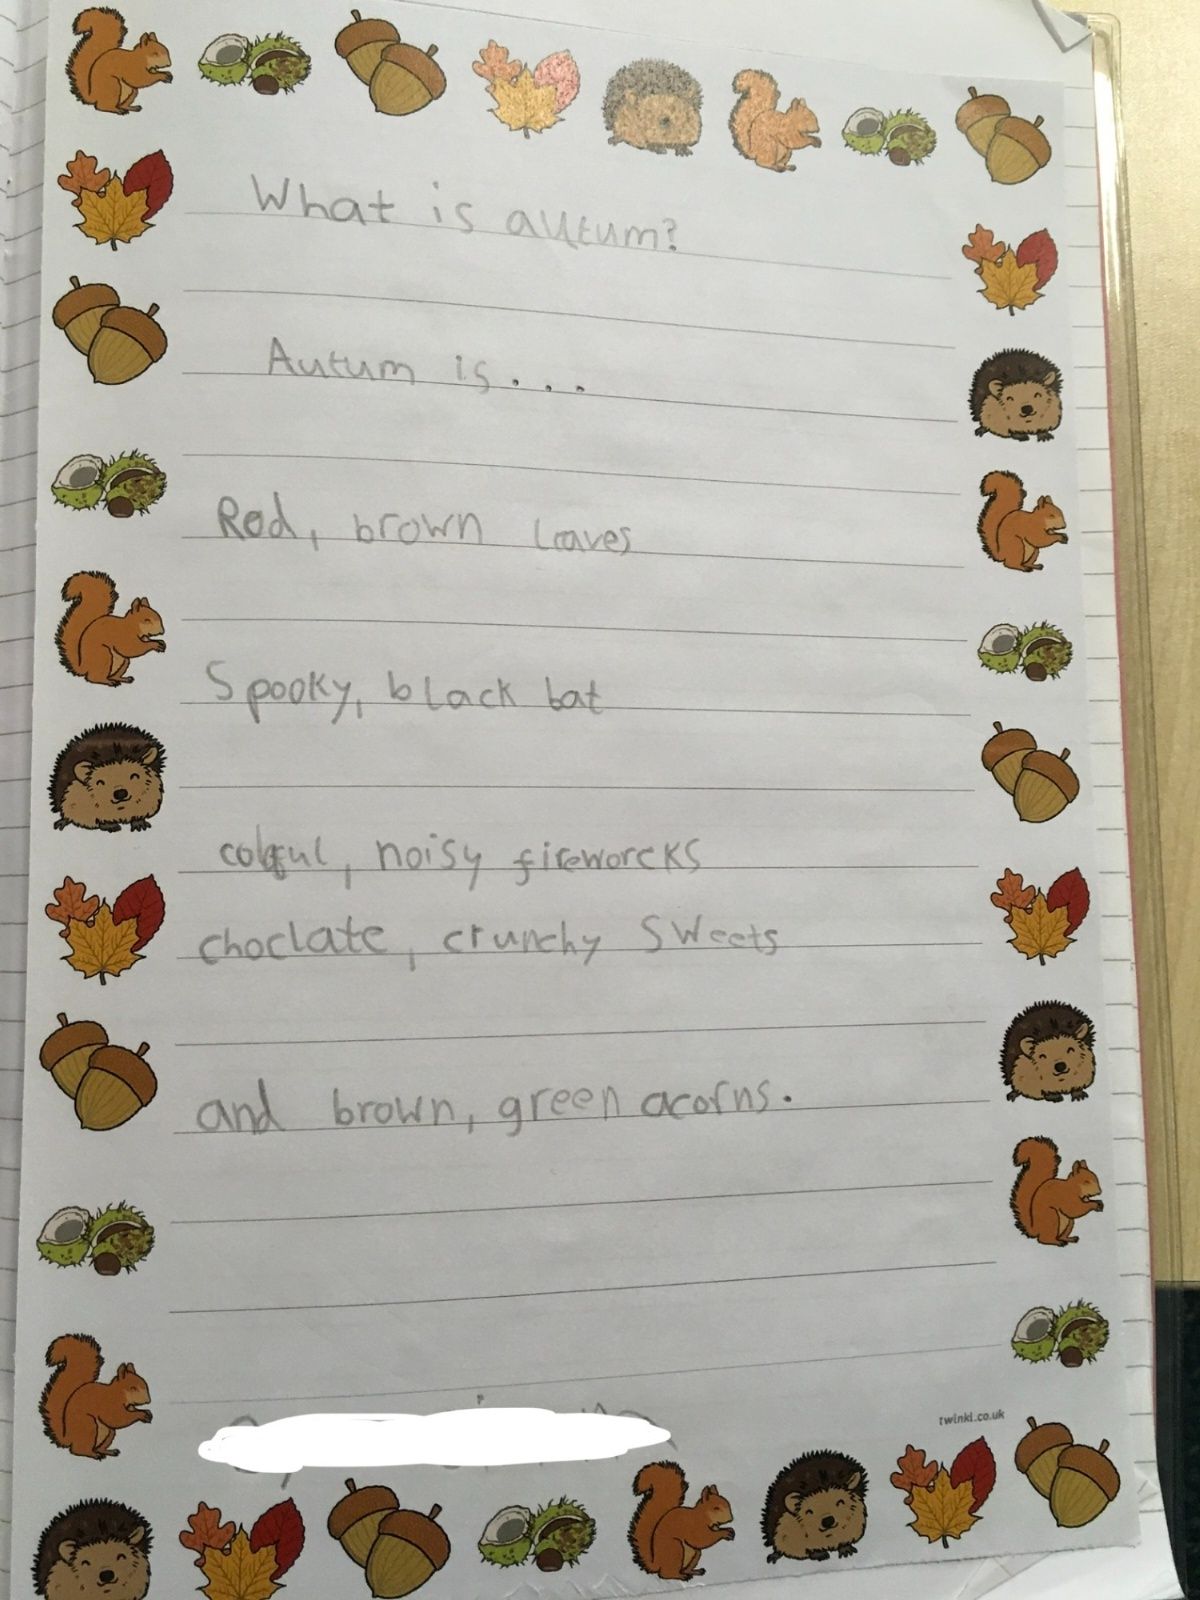 What is autum?
Autum is...
Red, brown leaves
Spooky, black bat
colgul, noisy fireworcks
choclate, crunchy sweets
and brown, green acorns.
twinkl.co.uk